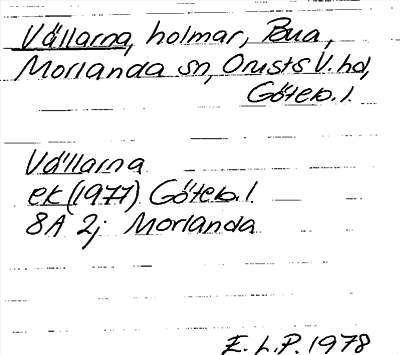 Vällarna, holmar, Boua,
Morlanda sn, Orusts V. hd,
Göteb. l.
Vällarna
ek (1977) Göteb. l.
8A 2j Morlanda
E. L. P. 1978